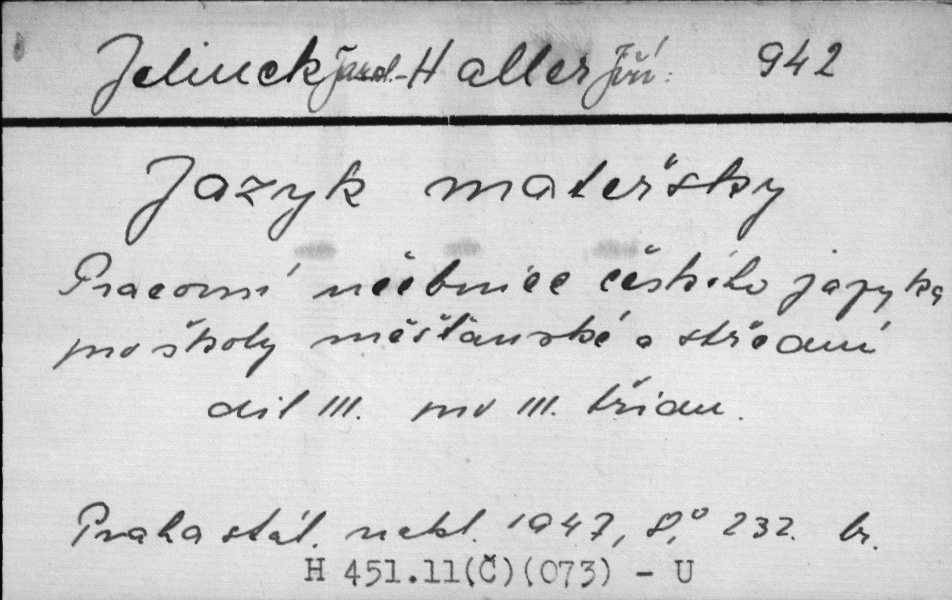 Jelinek Jarosl.-Haller Jiří: 942
Jazyk mateřsky
Pracovní učebnice českého jazyka
pro školy měšťanské a střední
díl III. pro III. třídu.
Praha stát. nakl. 1947, 8.° 232. br.
H 451.11(Č)(073) - U